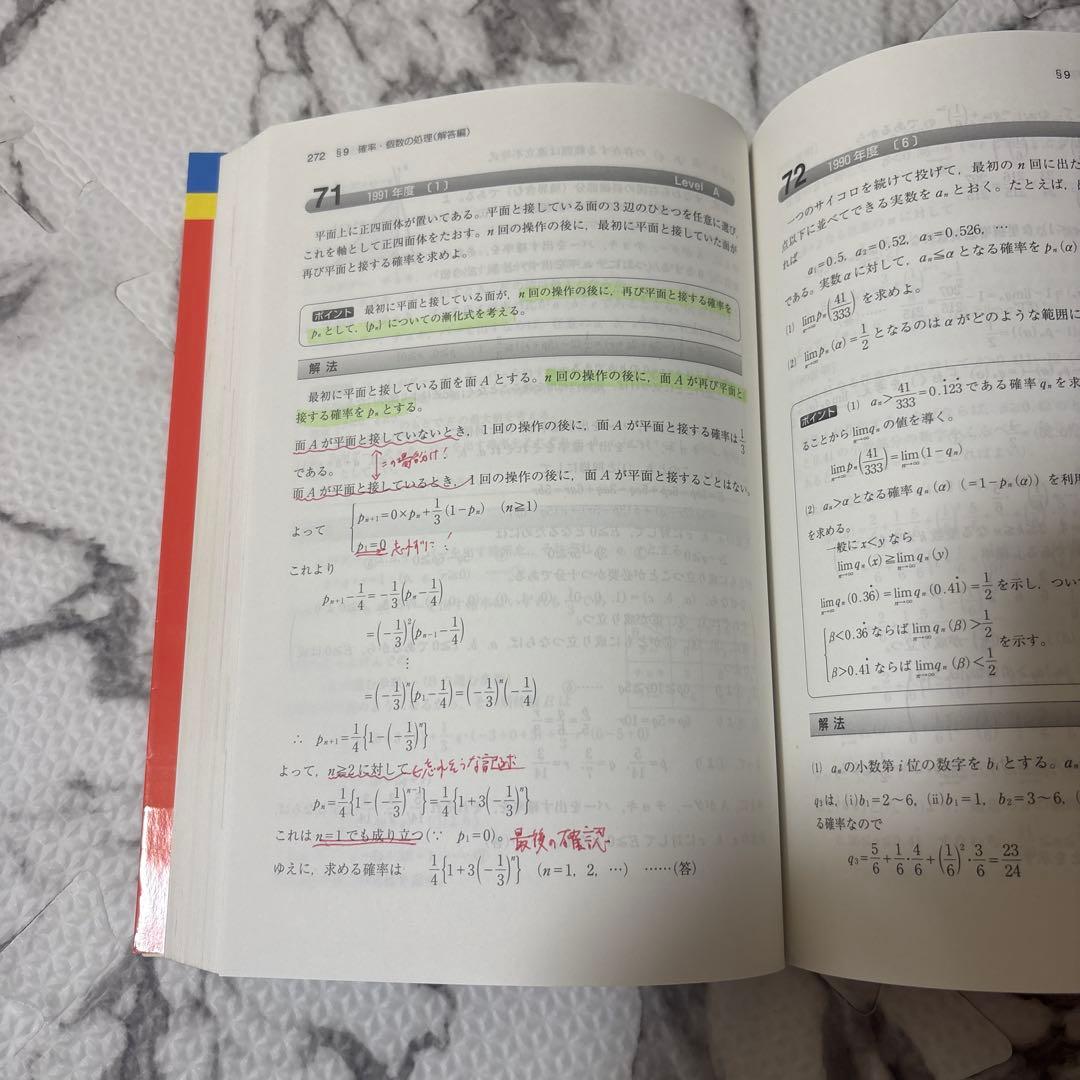 272 §9 確率・個数の処理(解答編)
71 1991年度 〔1〕 Level A
平面上に正四面体が置いてある。平面と接している面の3辺のひとつを任意に選び,
これを軸として正四面体をたおす。n回の操作の後に,最初に平面と接していた面が
再び平面と接する確率を求めよ。
ポイント 最初に平面と接している面が,n回の操作の後に,再び平面と接する確率を
pₙとして,{pₙ}についての漸化式を考える。
解法
最初に平面と接している面を面Aとする。n回の操作の後に,面Aが再び平面と
接する確率をpₙとする。
面Aが平面と接していないとき,1回の操作の後に,面Aが平面と接する確率は1/3
である。 この場合分け!
面Aが平面と接しているとき,1回の操作の後に,面Aが平面と接することはない。
よって { pₙ₊₁=0×pₙ+1/3(1-pₙ) (n≧1)
p₁=0 忘れずに!
これより
pₙ₊₁-1/4=-1/3(pₙ-1/4)
=(-1/3)²(pₙ₋₁-1/4)
⋮
=(-1/3)ⁿ(p₁-1/4)=(-1/3)ⁿ(-1/4)
∴ pₙ₊₁=1/4{1-(-1/3)ⁿ}
よって,n≧2に対して 忘れそうな記述
pₙ=1/4{1-(-1/3)ⁿ⁻¹}=1/4{1+3(-1/3)ⁿ}
これはn=1でも成り立つ(∵ p₁=0)。 最後の確認
ゆえに,求める確率は 1/4{1+3(-1/3)ⁿ} (n=1, 2, …) ……(答)
§9
72 1990年度 〔6〕
一つのサイコロを続けて投げて,最初のn回に出た
点以下に並べてできる実数をaₙとおく。たとえば,
れば a₁=0.5, a₂=0.52, a₃=0.526, …
である。実数αに対して,aₙ≦αとなる確率をpₙ(α)
(1) lim n→∞ pₙ(41/333)を求めよ。
(2) lim n→∞ pₙ(α)=1/2となるのはαがどのような範囲に
ポイント (1) aₙ>41/333=0.1̇23̇である確率qₙを求
ることからlim n→∞ qₙの値を導く。
lim n→∞ pₙ(41/333)=lim n→∞ (1-qₙ)
(2) aₙ>αとなる確率qₙ(α) (=1-pₙ(α))を利用
を求める。
一般にx<yなら
lim n→∞ qₙ(x)≧lim n→∞ qₙ(y)
lim n→∞ qₙ(0.36̇)=lim n→∞ qₙ(0.41̇)=1/2を示し,つい
{ β<0.36̇ならばlim n→∞ qₙ(β)>1/2
β>0.41̇ならばlim n→∞ qₙ(β)<1/2 を示す。
解法
(1) aₙの小数第i位の数字をbᵢとする。aₙ
q₃は,(i)b₁=2~6, (ii)b₁=1, b₂=3~6, (
る確率なので
q₃=5/6+1/6・4/6+(1/6)²・3/6=23/24